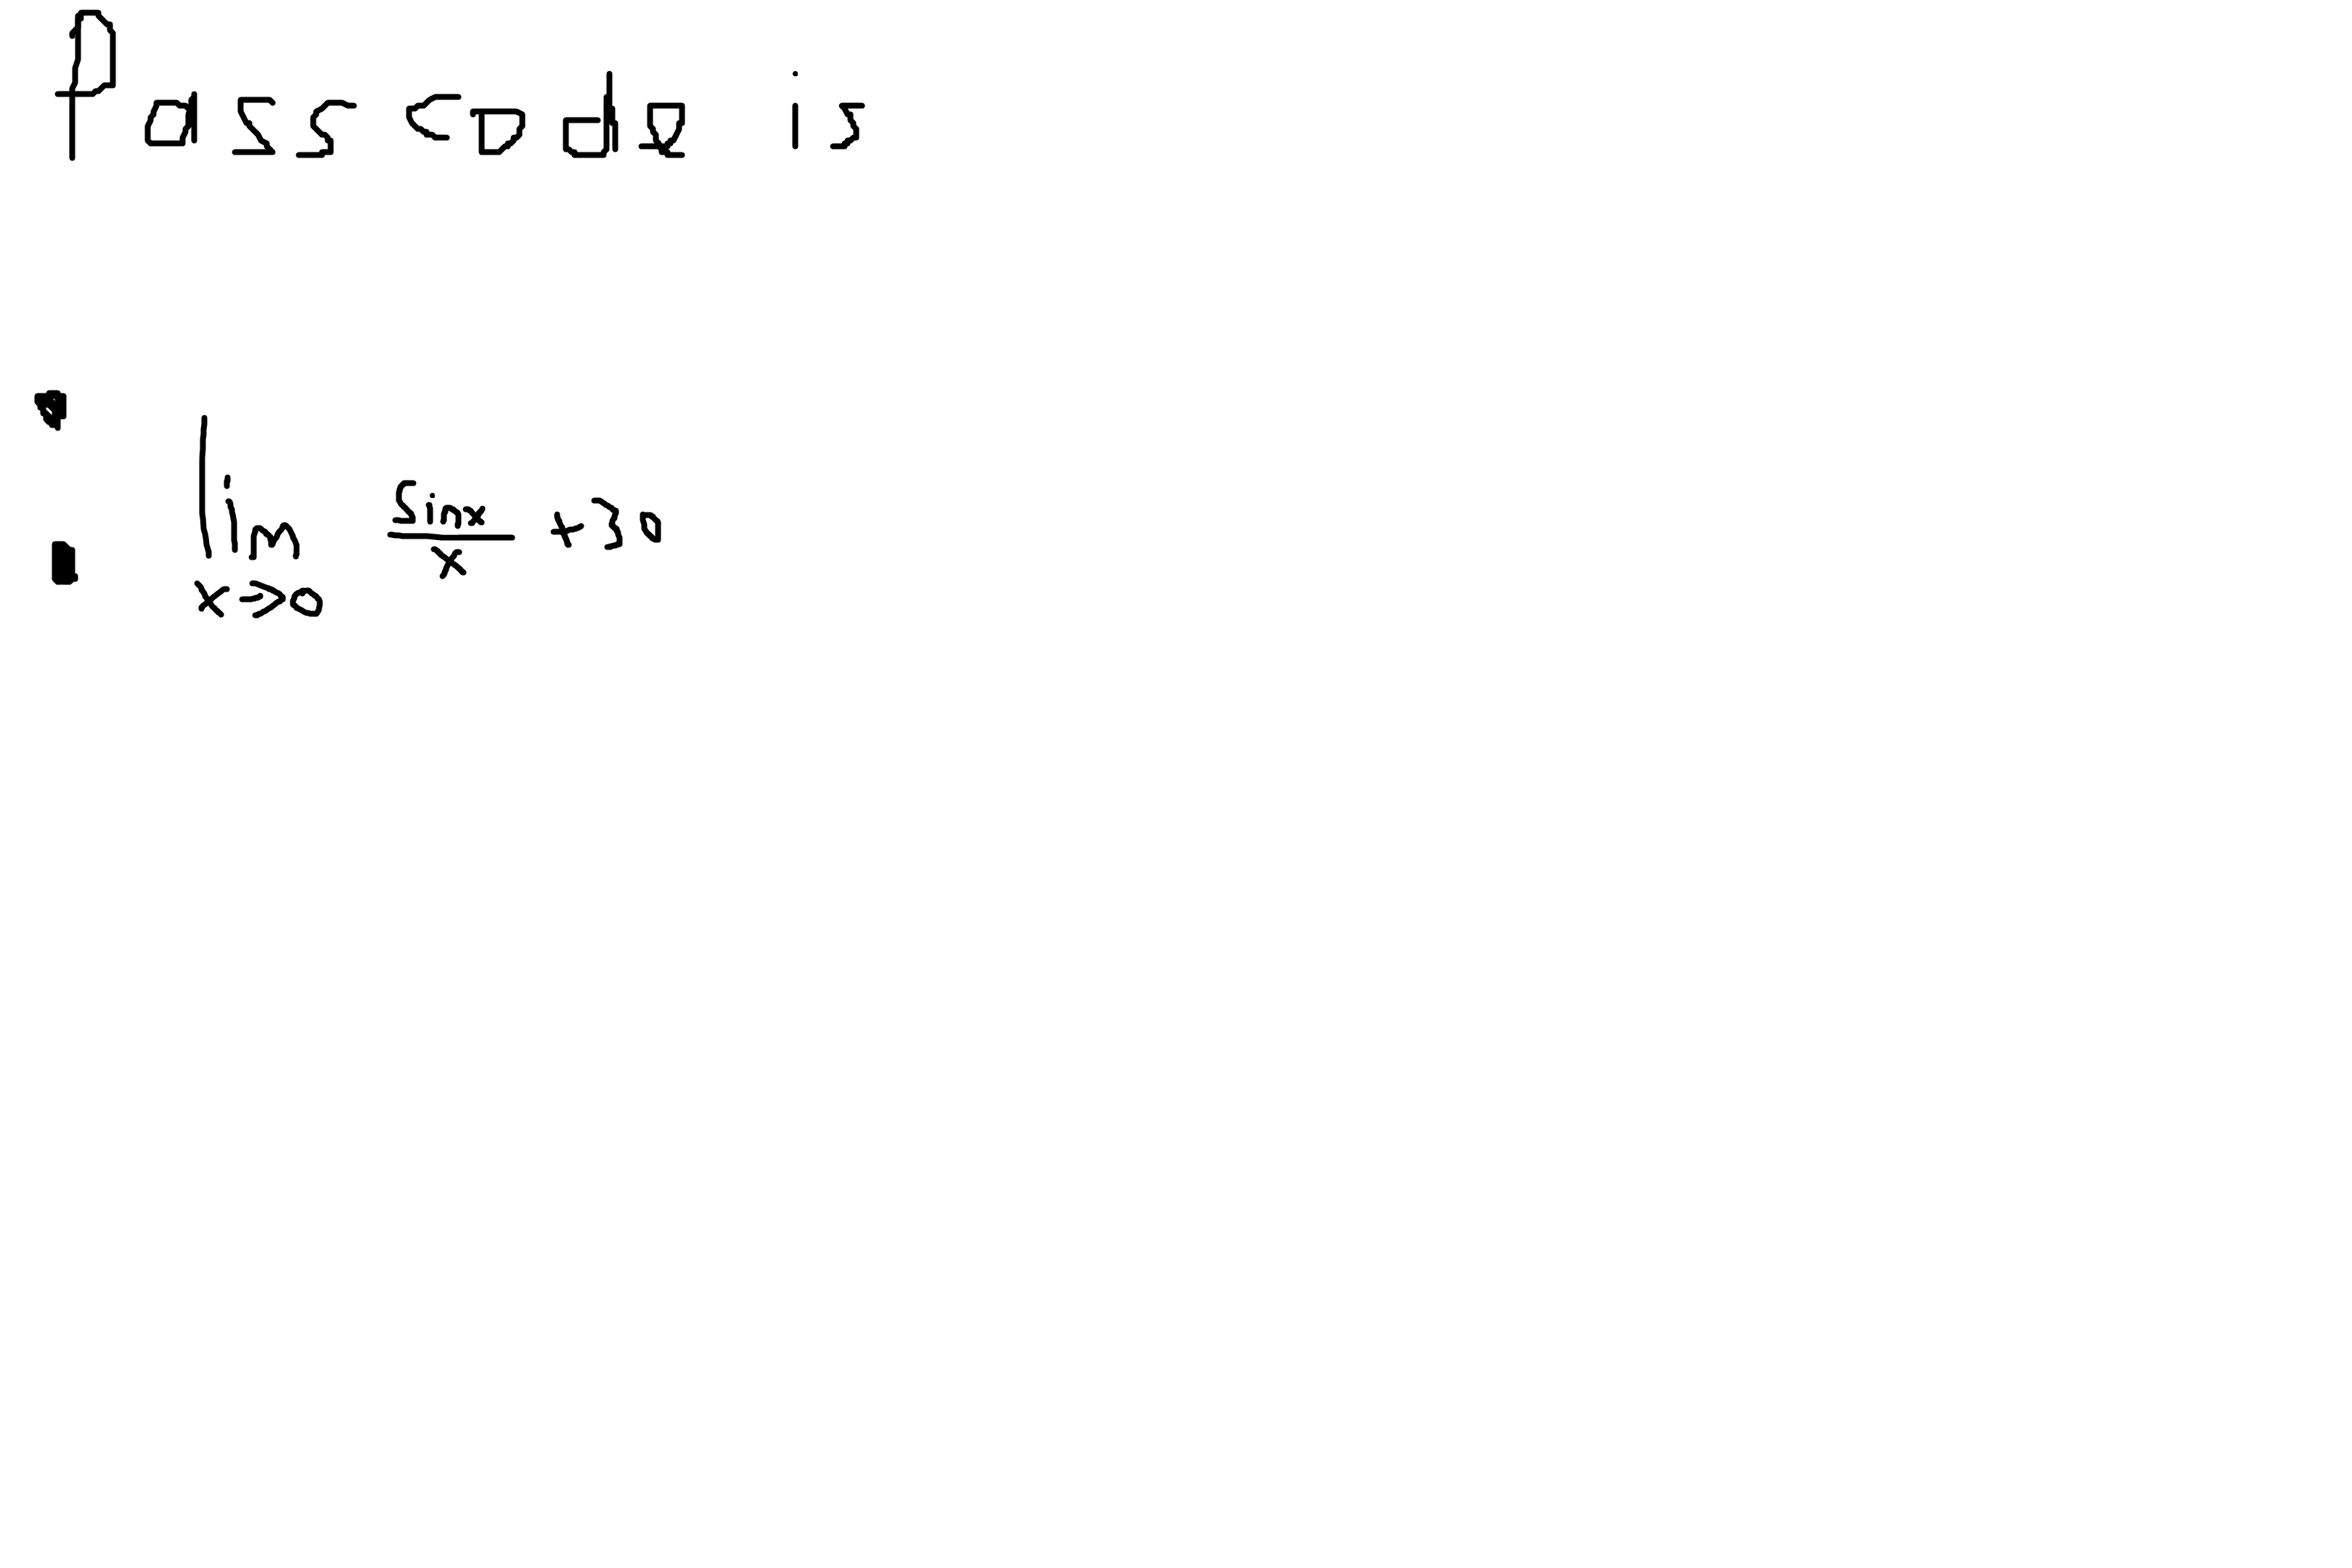 Passcode is
: lim sinx/x +30
x->0